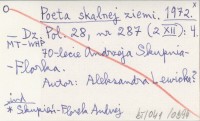 Poeta skalnej ziemi. 1972.
— Dz. Pol. 28, nr 287 (2 XII) s. 4.
MT-WHP
70-lecie Andrzeja Skupnia-
-Florka.
Autor: Aleksandra
* Skupień-Florek Andrzej